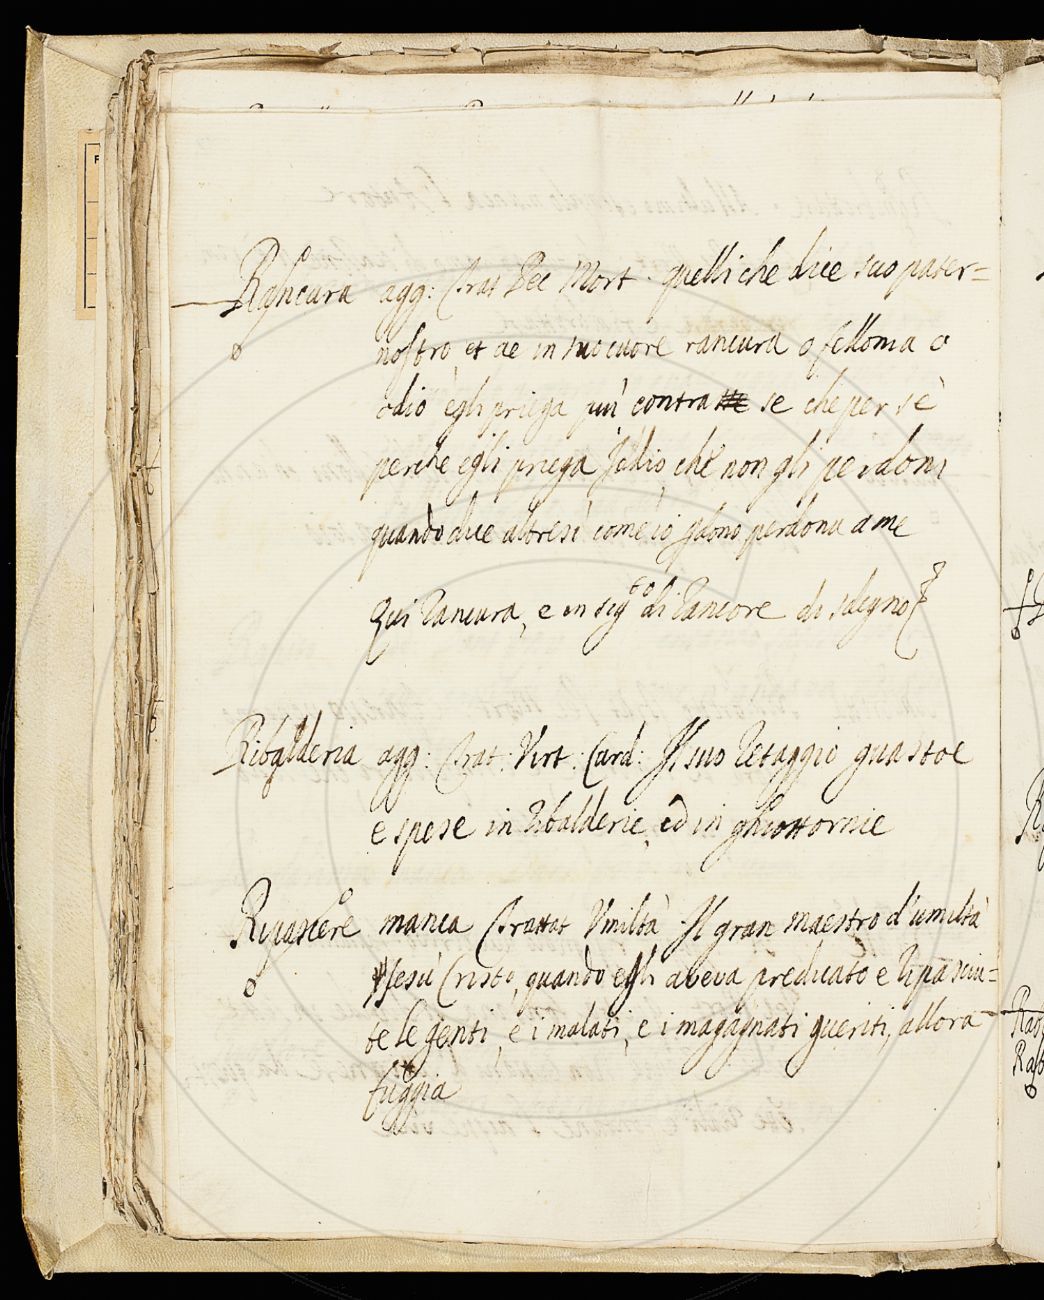 Rancura agg: Trat Pec Mort. quelli che dice suo pater=
nostro, et ae in suo cuore rancura o fellonia o
odio egli priega più contra se che per sè
perche egli priega Iddio, che non gli perdoni
quando dice altresi come io perdono, perdona a me
Qui Rancura, e in sig.to di Rancore di sdegno
Ribalderia agg: Trat: Virt: Card: Il suo retaggio guastoe
e spese in ribalderie, ed in ghiottornie
Ripascere manca Trattat Vmiltà. Il gran maestro d'umiltà
Iesù Cristo, quando egli aveva predicato e ripasciu=
te le genti, e i malati, e i magagnati gueriti, allora
fuggia